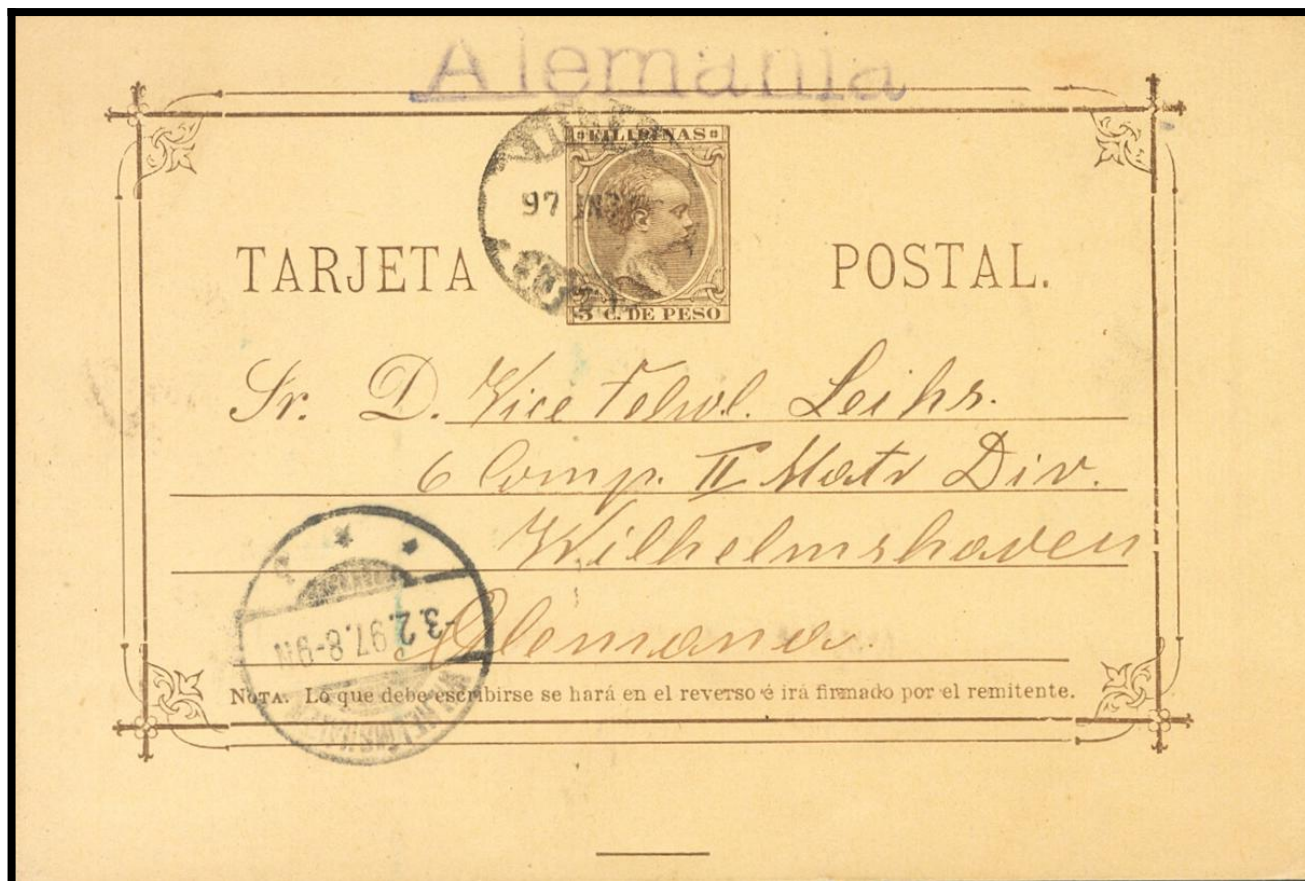 Alemania
FILIPINAS
97
TARJETA POSTAL.
3 C. DE PESO
Sr. D. Vice Feldw. Leihs.
6 Comp. II Matr Div.
Wilhelmshaven
-3.2.97.8-9N
Alemana.
NOTA. Lo que debe escribirse se hará en el reverso é irá firmado por el remitente.